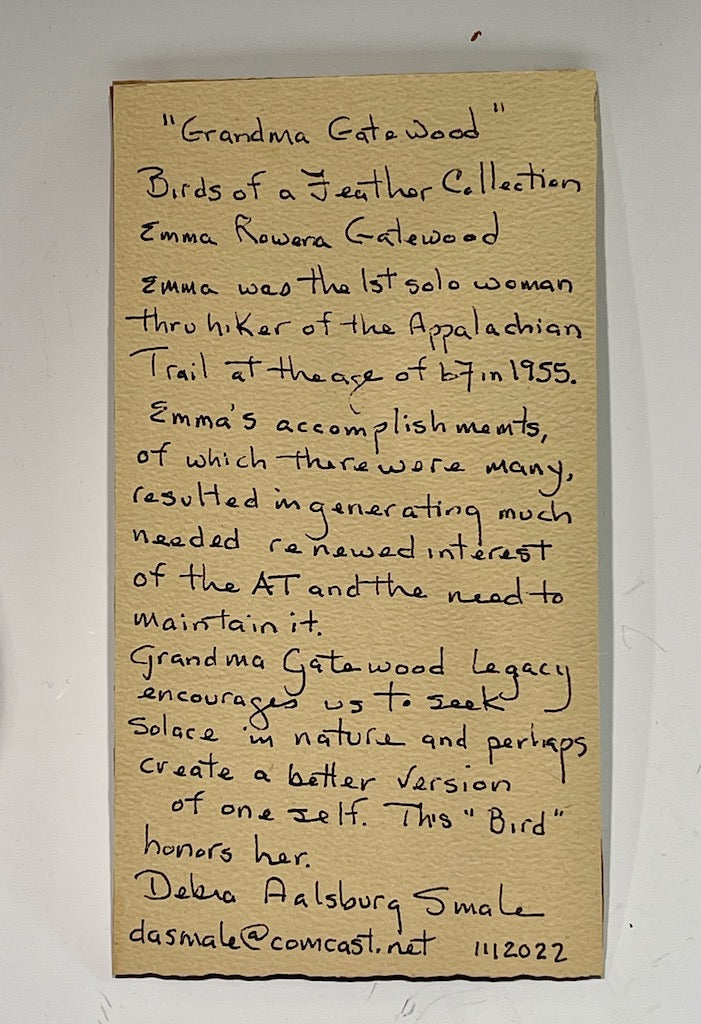 "Grandma Gatewood"
Birds of a Feather Collection
Emma Rowena Gatewood
Emma was the 1st solo woman
thru hiker of the Appalachian
Trail at the age of 67 in 1955.
Emma's accomplishments,
of which there were many,
resulted in generating much
needed renewed interest
of the AT and the need to
maintain it.
Grandma Gatewood legacy
encourages us to seek
solace in nature and perhaps
create a better version
of one self. This "Bird"
honors her.
Debra Aalsburg Smale
dasmale@comcast.net 1112022